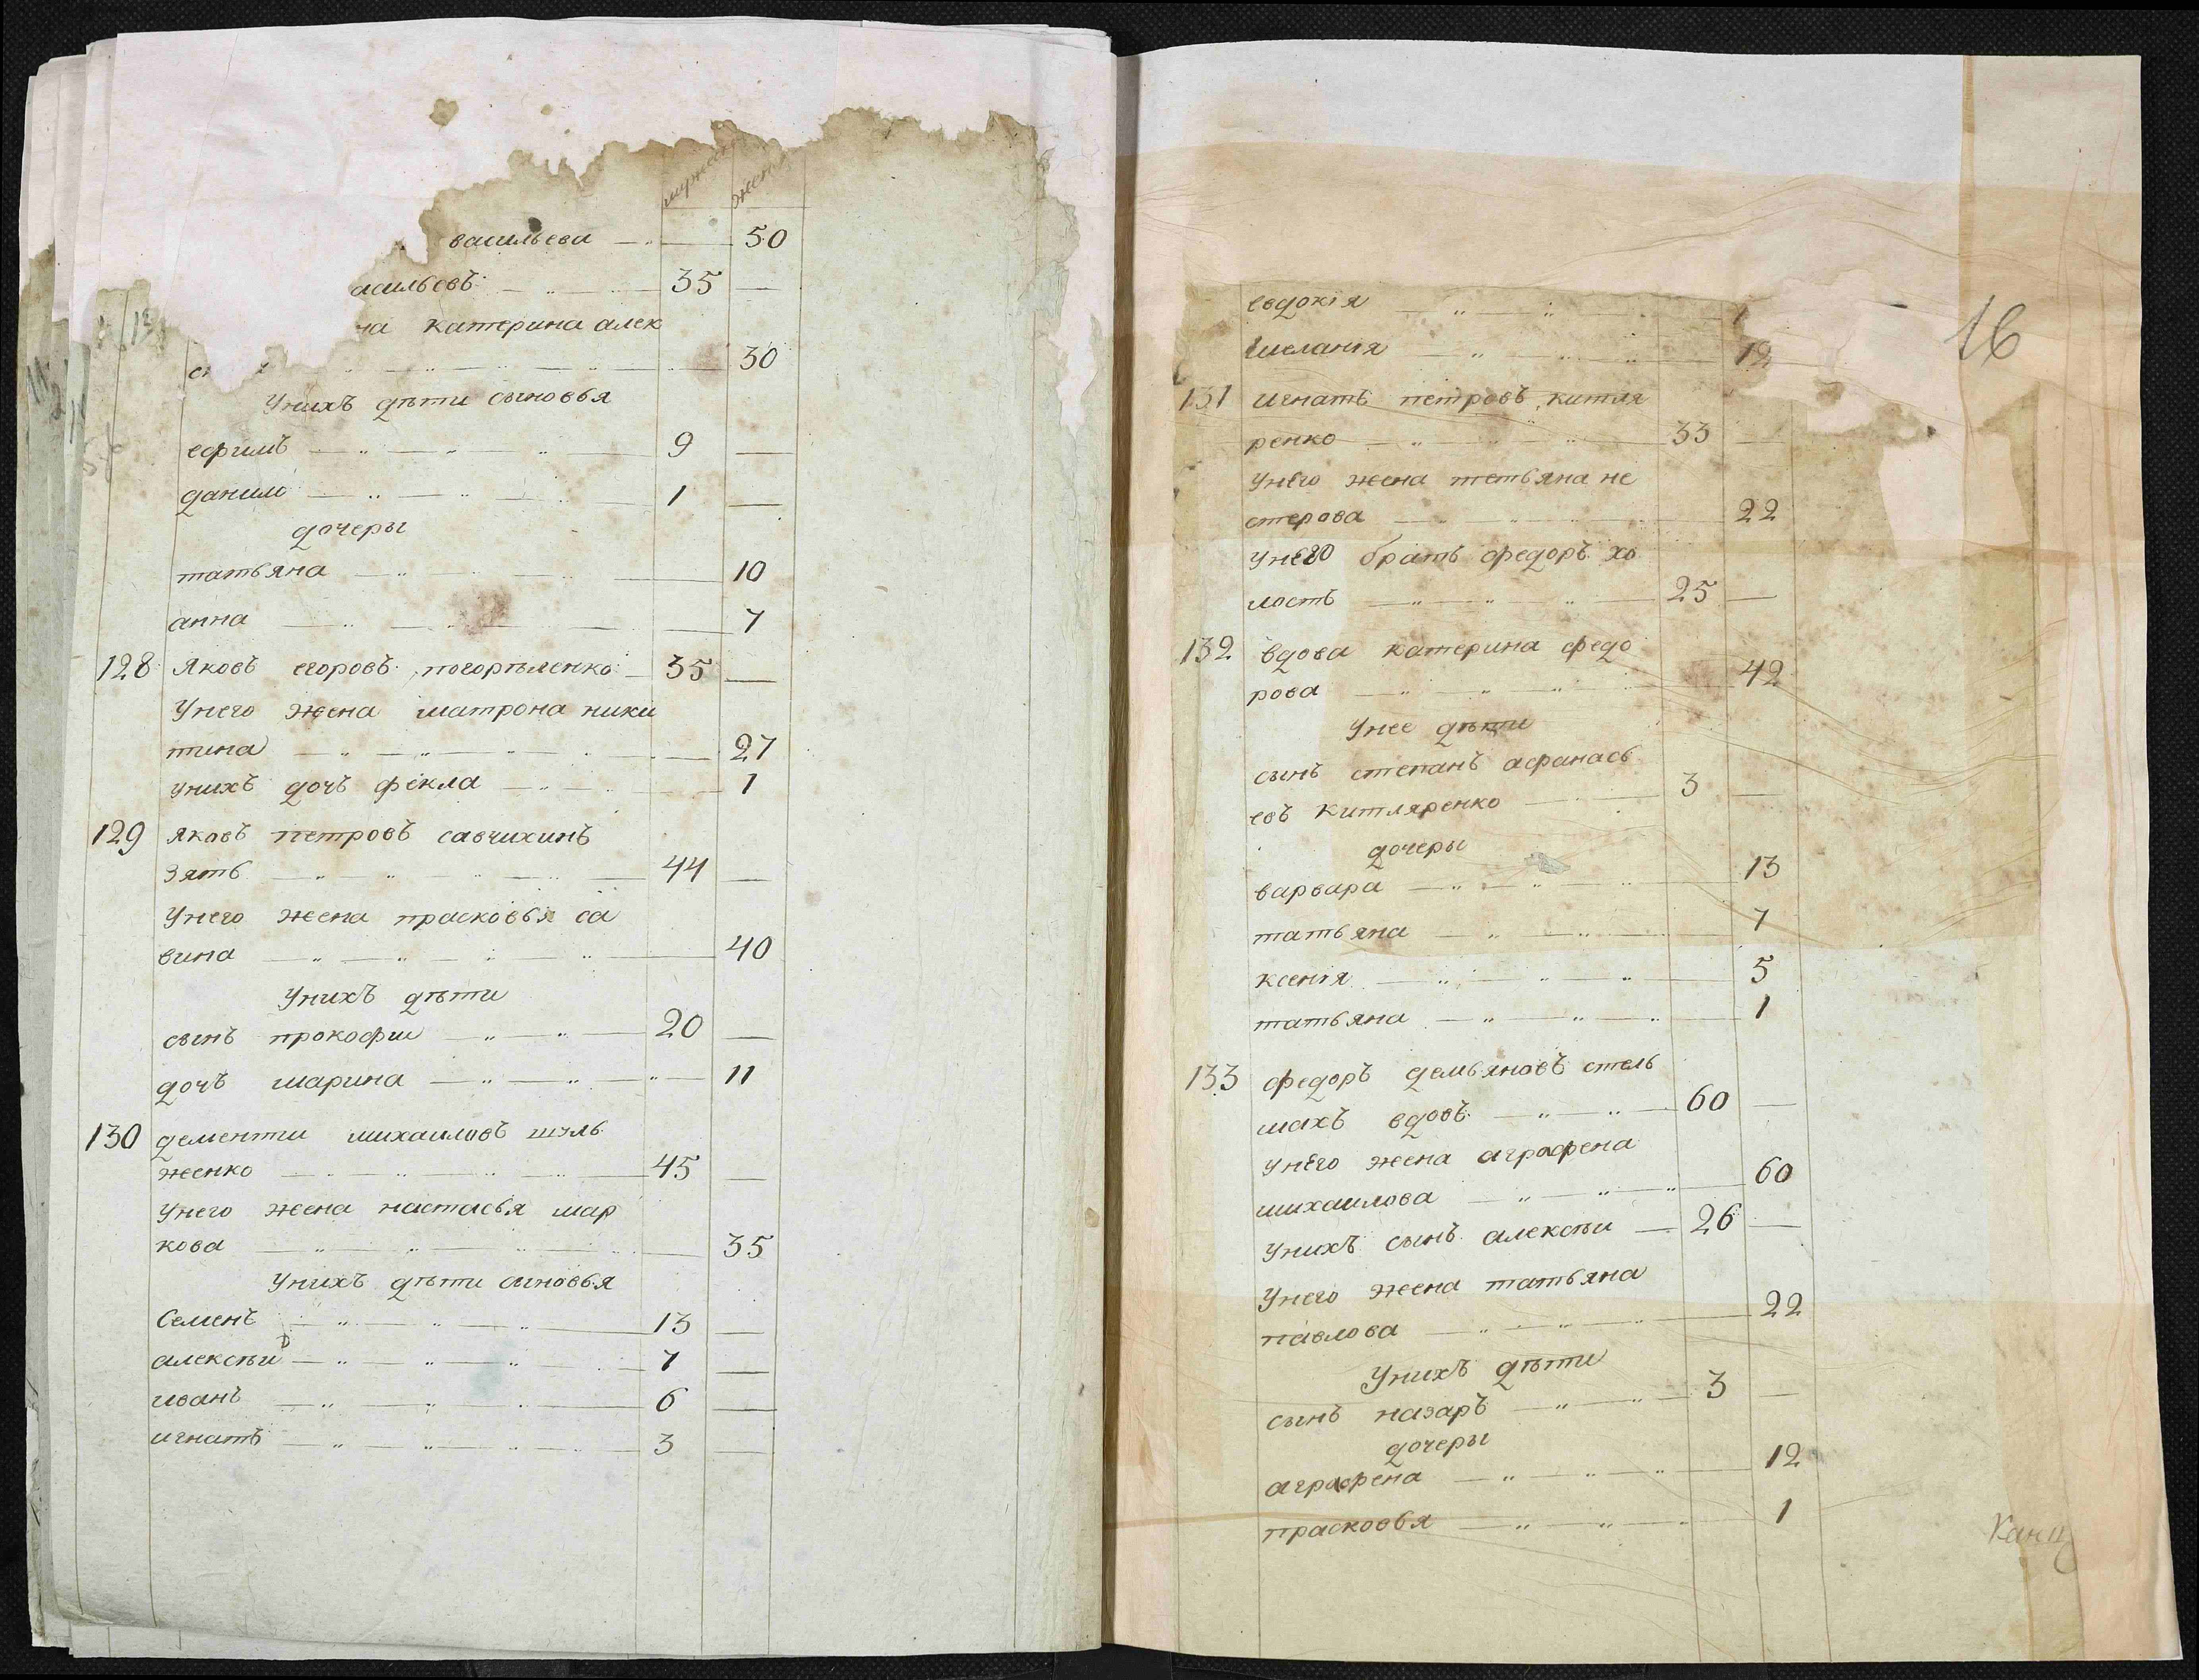 васильева 50
асильевъ 35
на катерина алек
30
Унихъ дѣти сыновья
ефимъ 9
данило 1
дочеры
татьяна 10
анна 7
128 Яковъ егоровъ погорѣленко 35
Унего жена матрона ники
тина 27
унихъ дочъ фекла 1
129 яковъ петровъ савчихинъ
зять 44
Унего жена прасковья са
вина 40
Унихъ дѣти
сынъ прокофии 20
дочъ марина 11
130 дементии михаиловъ шуль
женко 45
Унего жена настасья мар
кова 35
Унихъ дѣти сыновья
Семенъ 13
алексѣи 7
иванъ 6
игнатъ 3
16
евдокія
меланія 12
131 игнатъ петровъ китля
ренко 33
Унего жена тетьяна не
стерова 22
унего братъ федоръ хо
лостъ 25
132 вдова катерина федо
рова 42
Унее дѣти
сынъ степанъ афанась
евъ китляренко 3
дочеры
варвара 13
татьяна 7
ксенія 5
татьяна 1
133 федоръ демьяновъ стель
махъ вдовъ 60
унего жена аграфена
михаилова 60
унихъ сынъ алексѣи 26
Унего жена татьяна
павлова 22
Унихъ дѣти
сынъ назаръ 3
дочеры
аграфена 12
прасковья 1
Канц